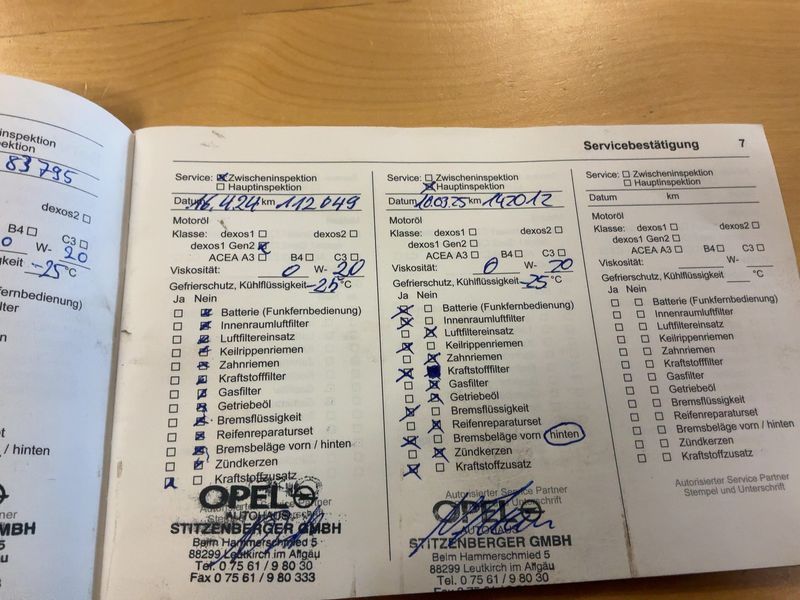 inspektion
ektion
83795
dexos2 ☐
B4 ☐ C3 ☐
0 W- 20
gkeit -25 °C
rnbedienung)
Servicebestätigung 7
Service: ☒ Zwischeninspektion
☐ Hauptinspektion
Datum km 112 049
Motoröl
Klasse: dexos1 ☐ dexos2 ☐
dexos1 Gen2 ☒
ACEA A3 ☐ B4 ☐ C3 ☐
Viskosität: 0 W- 20
Gefrierschutz, Kühlflüssigkeit -25 °C
Ja Nein
☐ ☒ Batterie (Funkfernbedienung)
☐ ☒ Innenraumluftfilter
☐ ☒ Luftfiltereinsatz
☐ ☒ Keilrippenriemen
☐ ☒ Zahnriemen
☐ ☒ Kraftstofffilter
☐ ☒ Gasfilter
☐ ☒ Getriebeöl
☐ ☒ Bremsflüssigkeit
☐ ☒ Reifenreparaturset
☐ ☒ Bremsbeläge vorn / hinten
☐ ☒ Zündkerzen
☒ ☐ Kraftstoffzusatz
OPEL
AUTOHAUS
STITZENBERGER GMBH
Beim Hammerschmied 5
88299 Leutkirch im Allgäu
Tel. 0 75 61 / 9 80 30
Fax 0 75 61 / 9 80 333
Service: ☐ Zwischeninspektion
☒ Hauptinspektion
Datum 10.03.25 km 142012
Motoröl
Klasse: dexos1 ☐ dexos2 ☐
dexos1 Gen2 ☐
ACEA A3 ☐ B4 ☐ C3 ☐
Viskosität: 0 W- 20
Gefrierschutz, Kühlflüssigkeit -25 °C
Ja Nein
☒ ☐ Batterie (Funkfernbedienung)
☒ ☐ Innenraumluftfilter
☐ ☒ Luftfiltereinsatz
☒ ☐ Keilrippenriemen
☐ ☒ Zahnriemen
☒ ■ Kraftstofffilter
☐ ☒ Gasfilter
☐ ☒ Getriebeöl
☒ ☐ Bremsflüssigkeit
☐ ☒ Reifenreparaturset
☒ ☐ Bremsbeläge vorn hinten
☐ ☒ Zündkerzen
☒ ☐ Kraftstoffzusatz
Autorisierter Service Partner
OPEL
AUTOHAUS
STITZENBERGER GMBH
Beim Hammerschmied 5
88299 Leutkirch im Allgäu
Tel. 0 75 61 / 9 80 30
Service: ☐ Zwischeninspektion
☐ Hauptinspektion
Datum km
Motoröl
Klasse: dexos1 ☐ dexos2 ☐
dexos1 Gen2 ☐
ACEA A3 ☐ B4 ☐ C3 ☐
Viskosität: W-
Gefrierschutz, Kühlflüssigkeit °C
Ja Nein
☐ ☐ Batterie (Funkfernbedienung)
☐ ☐ Innenraumluftfilter
☐ ☐ Luftfiltereinsatz
☐ ☐ Keilrippenriemen
☐ ☐ Zahnriemen
☐ ☐ Kraftstofffilter
☐ ☐ Gasfilter
☐ ☐ Getriebeöl
☐ ☐ Bremsflüssigkeit
☐ ☐ Reifenreparaturset
☐ ☐ Bremsbeläge vorn / hinten
☐ ☐ Zündkerzen
☐ ☐ Kraftstoffzusatz
Autorisierter Service Partner
Stempel und Unterschrift